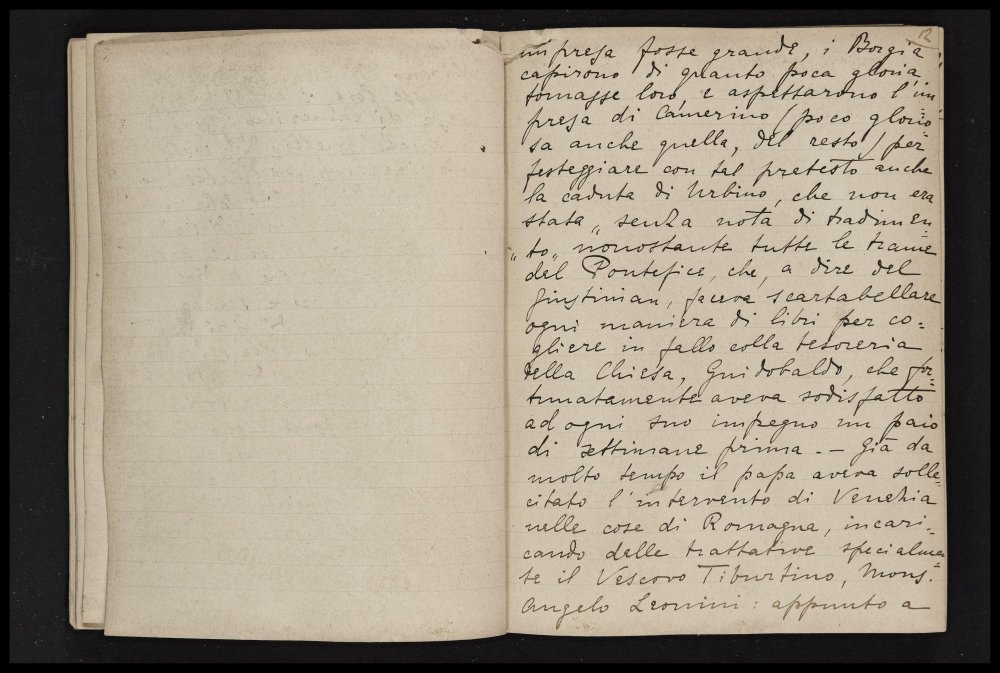 12
impresa fosse grande, i Borgia
capirono di quanto poca gloria
tornasse loro, e aspettarono l'im=
presa di Camerino (poco glorio=
sa anche quella, del resto) per
festeggiare con tal pretesto anche
la caduta di Urbino, che non era
stata „senza nota di tradimen=
„to„ nonostante tutte le trame
del Pontefice, che, a dire del
Giustinian, faceva scartabellare
ogni maniera di libri per co=
gliere in fallo colla tesoreria
della Chiesa, Guidobaldo, che for=
tunatamente aveva sodisfatto
ad ogni suo impegno un paio
di settimane prima. — Già da
molto tempo il papa aveva solle=
citato l'intervento di Venezia
nelle cose di Romagna, incari=
cando delle trattative specialmen=
te il Vescovo Tiburtino, Mons.
Angelo Leonini: appunto a